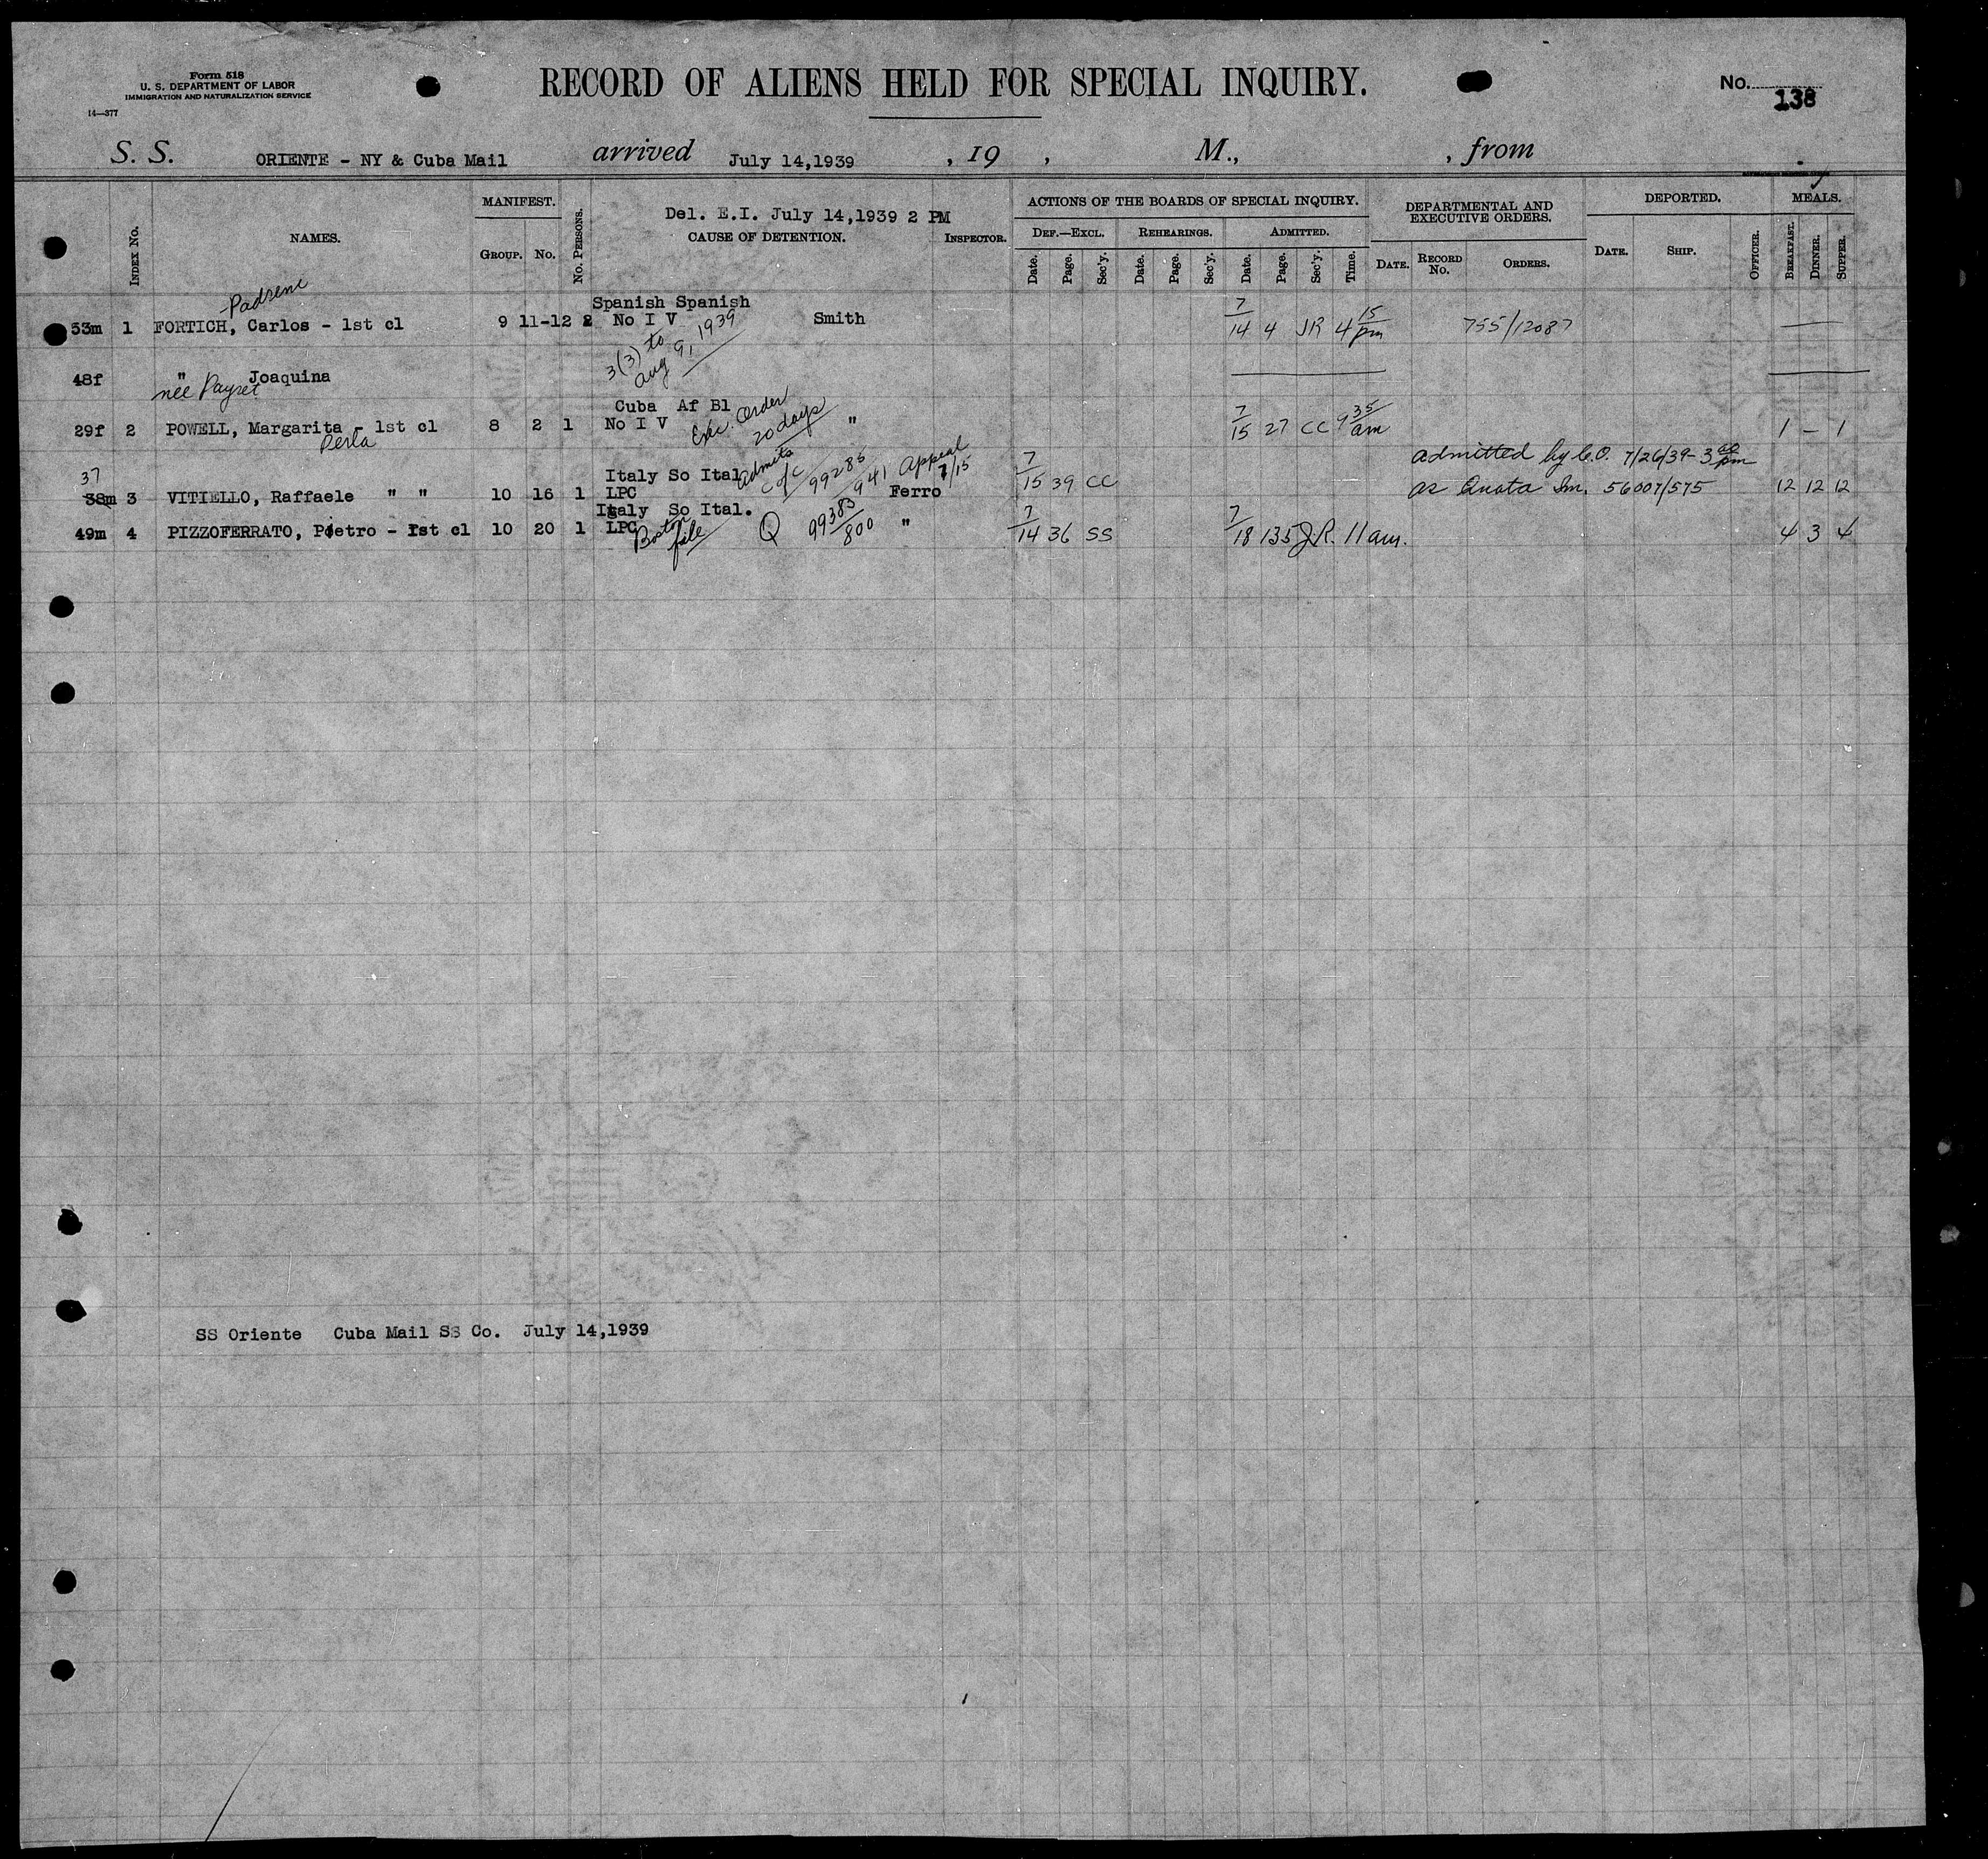 Form 518
U. S. DEPARTMENT OF LABOR
IMMIGRATION AND NATURALIZATION SERVICE
14—377
RECORD OF ALIENS HELD FOR SPECIAL INQUIRY.
No. 138
S. S. ORIENTE - NY & Cuba Mail arrived July 14,1939 , 19 , M., , from
INDEX No. NAMES. MANIFEST. GROUP. No. No. PERSONS. Del. E.I. July 14,1939 2 PM CAUSE OF DETENTION. INSPECTOR.
ACTIONS OF THE BOARDS OF SPECIAL INQUIRY. DEF.—EXCL. Date. Page. Sec'y. REHEARINGS. Date. Page. Sec'y. ADMITTED. Date. Page. Sec'y. Time.
DEPARTMENTAL AND EXECUTIVE ORDERS. DATE. RECORD No. ORDERS. DEPORTED. DATE. SHIP. OFFICER. MEALS. BREAKFAST. DINNER. SUPPER.
Spanish Spanish
53m 1 FORTICH, Carlos - 1st cl 9 11-12 2 No I V Smith 7/14 4 JR 4 15 pm 755/12087
3(3) to Aug 9, 1939
48f " Joaquina
née Payret
Cuba Af Bl
29f 2 POWELL, Margarita - 1st cl 8 2 1 No I V Exec. Order 20 days " 7/15 27 CC 9 35 am 1 — 1
Perla
37 Italy So Ital admits 99285/941 Appeal 7/15 admitted by C.O. 7/26/39- 3 pm
38m 3 VITIELLO, Raffaele " " 10 16 1 LPC Ferro 7/15 39 CC as Quota Im. 56007/575 12 12 12
Italy So Ital.
49m 4 PIZZOFERRATO, Pietro - 1st cl 10 20 1 LPC Boston file Q 99383/800 " 7/14 36 SS 7/18 135 J.R. 11 am. 4 3 4
SS Oriente Cuba Mail SS Co. July 14,1939